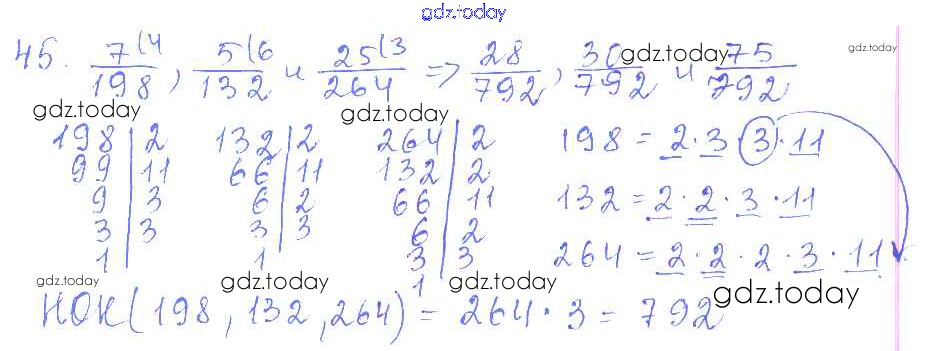 gdz.today
45. 7(4/198, 5(6/132 и 25(3/264 => 28/792, 30/792 и 75/792
gdz.today
gdz.today
gdz.today
gdz.today
gdz.today
198 | 2   132 | 2   264 | 2   198 = 2·3·3·11
99 | 11   66 | 11   132 | 2
9 | 3   6 | 2   66 | 11   132 = 2·2·3·11
3 | 3   3 | 3   6 | 2
1   1   3 | 3   264 = 2·2·2·3·11
1
gdz.today
gdz.today
gdz.today
gdz.today
НОК(198, 132, 264) = 264·3 = 792